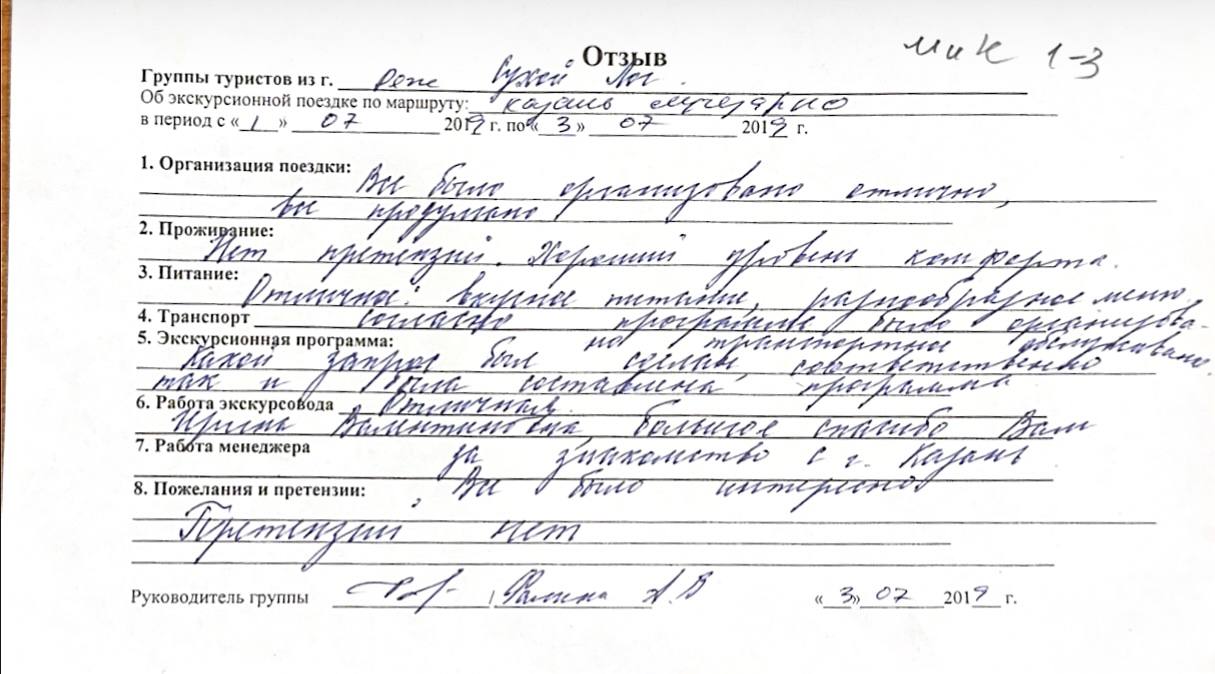 Отзыв
мик 1-3
Группы туристов из г. Реж Сухой Лог.
Об экскурсионной поездке по маршруту: Казань
в период с «1» 07 2019 г. по «3» 07 2019 г.
1. Организация поездки:
Все было организовано отлично,
все продумано
2. Проживание:
Нет претензий. Хороший уровень комфорта.
3. Питание:
Отличное: вкусное питание, разнообразное меню.
4. Транспорт согласно программе было организова-
5. Экскурсионная программа: но транспортное обслуживание.
Какой запрос был сделан, соответственно
так и была составлена программа
6. Работа экскурсовода Отличная.
Ирина Валентиновна, большое спасибо Вам
7. Работа менеджера за знакомство с г. Казань
8. Пожелания и претензии: Все было интересно
Претензий нет
Руководитель группы / А.В «3» 07 2019 г.